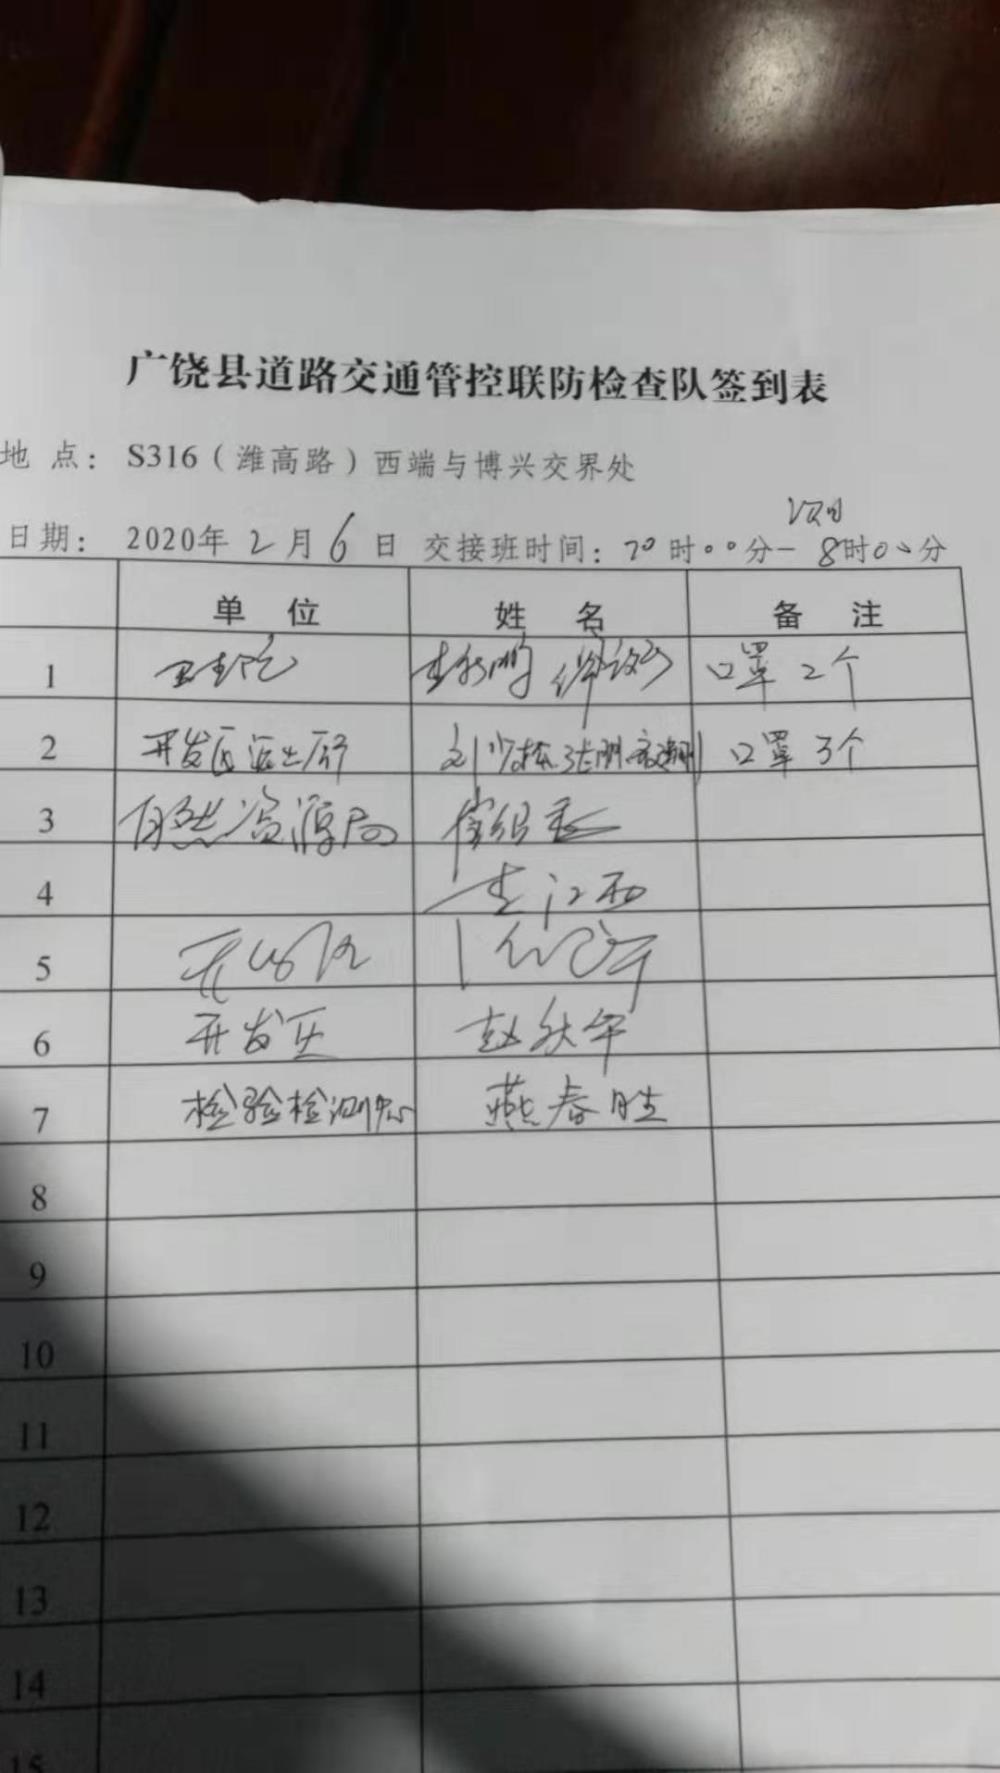 广饶县道路交通管控联防检查队签到表
地 点： S316（潍高路）西端与博兴交界处
次日
日期： 2020年 2 月 6 日 交接班时间：20时00分-8时00分
单 位 姓 名 备 注
1 卫生院 口罩 2个
2 开发区派出所 刘少松 口罩 3个
3 自然资源局
4 李江西
5 开发区
6 开发区 赵秋华
7 检验检测中心 燕春胜
8
9
10
11
12
13
14
15